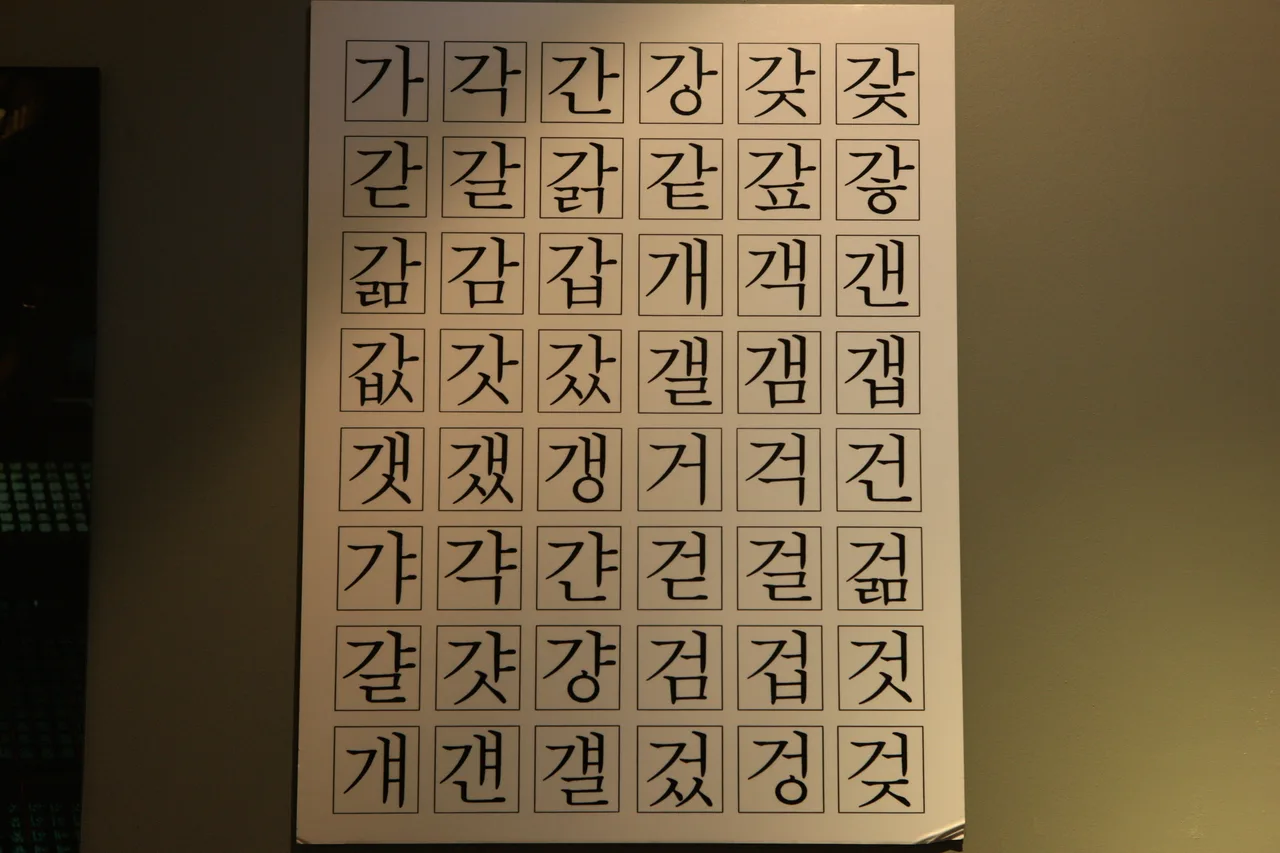 가 각 간 강 갖 갗
갇 갈 갉 같 갚 갛
갊 감 갑 개 객 갠
값 갓 갔 갤 갬 갭
갯 갰 갱 거 걱 건
갸 갹 갼 걷 걸 걺
걀 갓 걍 검 겁 것
걔 걘 걜 겄 겅 겆